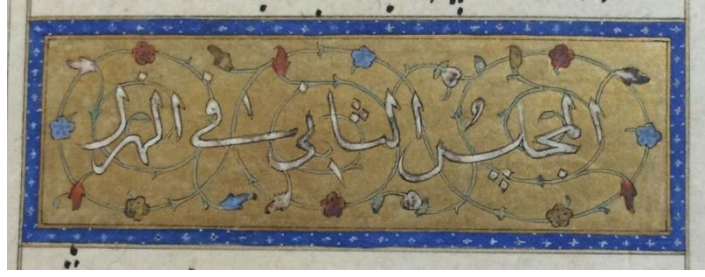 المجلس الثانی فی الهزل